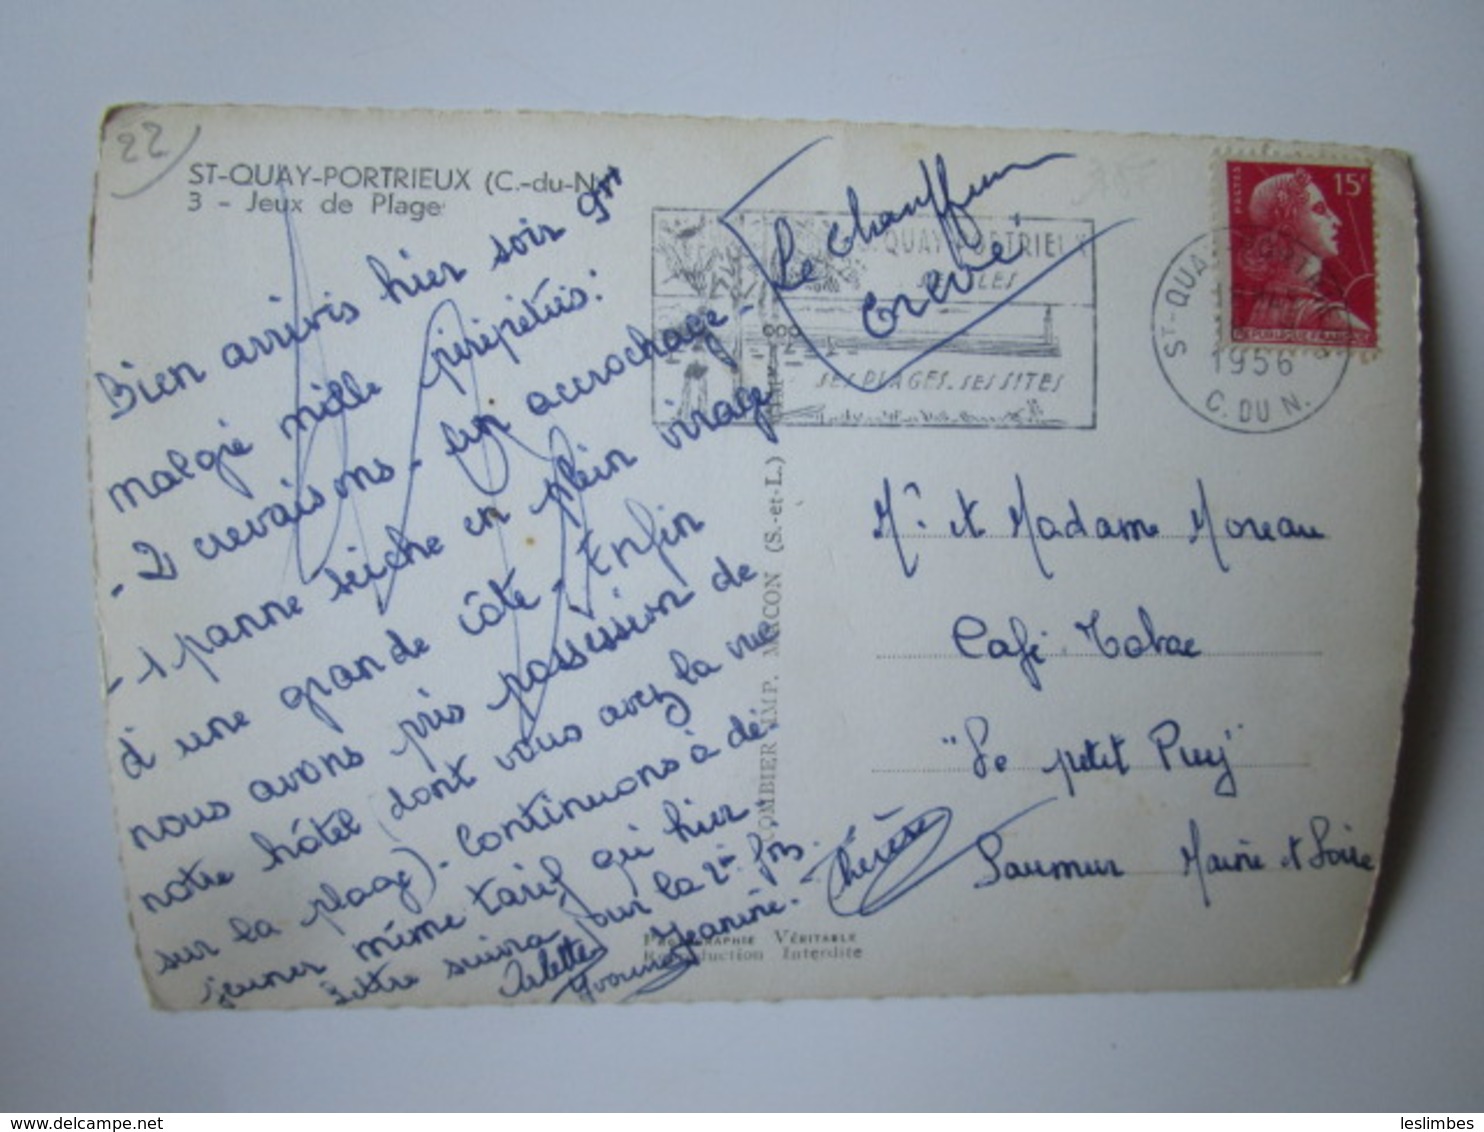 22
ST-QUAY-PORTRIEUX (C.-du-N.)
3 - Jeux de Plage
Bien arrivés hier soir 9h
malgré mille péripéties :
- 2 crevaisons - un accrochage -
- 1 panne sèche en plein virage
d'une grande côte - Enfin
nous avons pris possession de
notre hôtel (dont vous avez la vue
sur la plage) - Continuons à dé-
jeuner même tarif qu'hier -
lettre suivra pour la 2e fois.
Arlette
Yvonne
Jeanine -
Thérèse
Le chauffeur
crevé
QUAY-PORTRIEUX
SES PLAGES. SES SITES
15F
POSTES
REPUBLIQUE FRANÇAISE
ST-QUAY
1956
C. DU N.
COMBIER IMP. MACON (S.-et-L.)
Mr et Madame Moreau
Café Tabac
"Le petit Puy"
Saumur Maine et Loire
PHOTOGRAPHIE VÉRITABLE
Reproduction Interdite
leslimbes